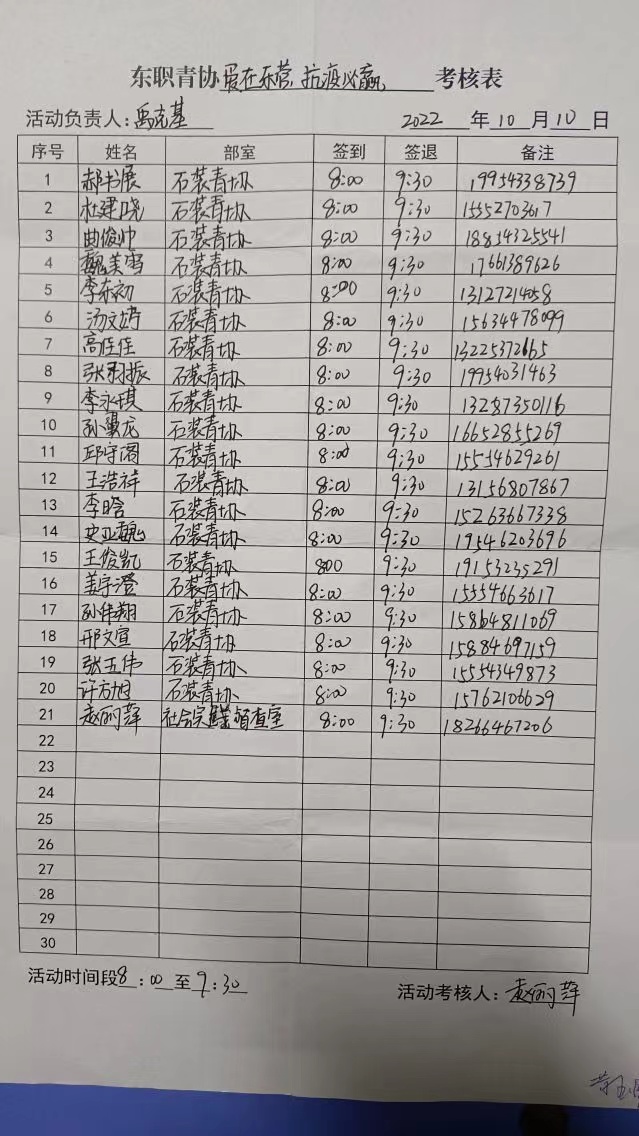 东职青协爱在东营,抗疫必赢考核表
活动负责人:禹克基 2022年10月10日
序号 姓名 部室 签到 签退 备注
1 郝书展 石装青协 8:00 9:30 19954338739
2 杜建晓 石装青协 8:00 9:30 15552703617
3 曲俊帅 石装青协 8:00 9:30 18854325541
4 魏美雪 石装青协 8:00 9:30 17661389626
5 李东初 石装青协 8:00 9:30 13127214058
6 汤文娉 石装青协 8:00 9:30 15634478099
7 高佳佳 石装青协 8:00 9:30 13225372665
8 张羽振 石装青协 8:00 9:30 19954031463
9 李永琪 石装青协 8:00 9:30 13287350116
10 孙翼龙 石装青协 8:00 9:30 16652855269
11 邱宇阔 石装青协 8:00 9:30 15554629261
12 王浩祥 石装青协 8:00 9:30 13156807867
13 李晗 石装青协 8:00 9:30 15263667338
14 史亚巍 石装青协 8:00 9:30 19546203696
15 王俊凯 石装青协 800 9:30 19153235291
16 姜宇澄 石装青协 8:00 9:30 15554663617
17 孙伟翔 石装青协 8:00 9:30 15864811069
18 邢文宣 石装青协 8:00 9:30 15884697159
19 张五伟 石装青协 8:00 9:30 15554349873
20 许方旭 石装青协 8:00 9:30 15762106629
21 赵丽萍 社会实践督查室 8:00 9:30 18266467206
22
23
24
25
26
27
28
29
30
活动时间段8:00至9:30 活动考核人:赵丽萍